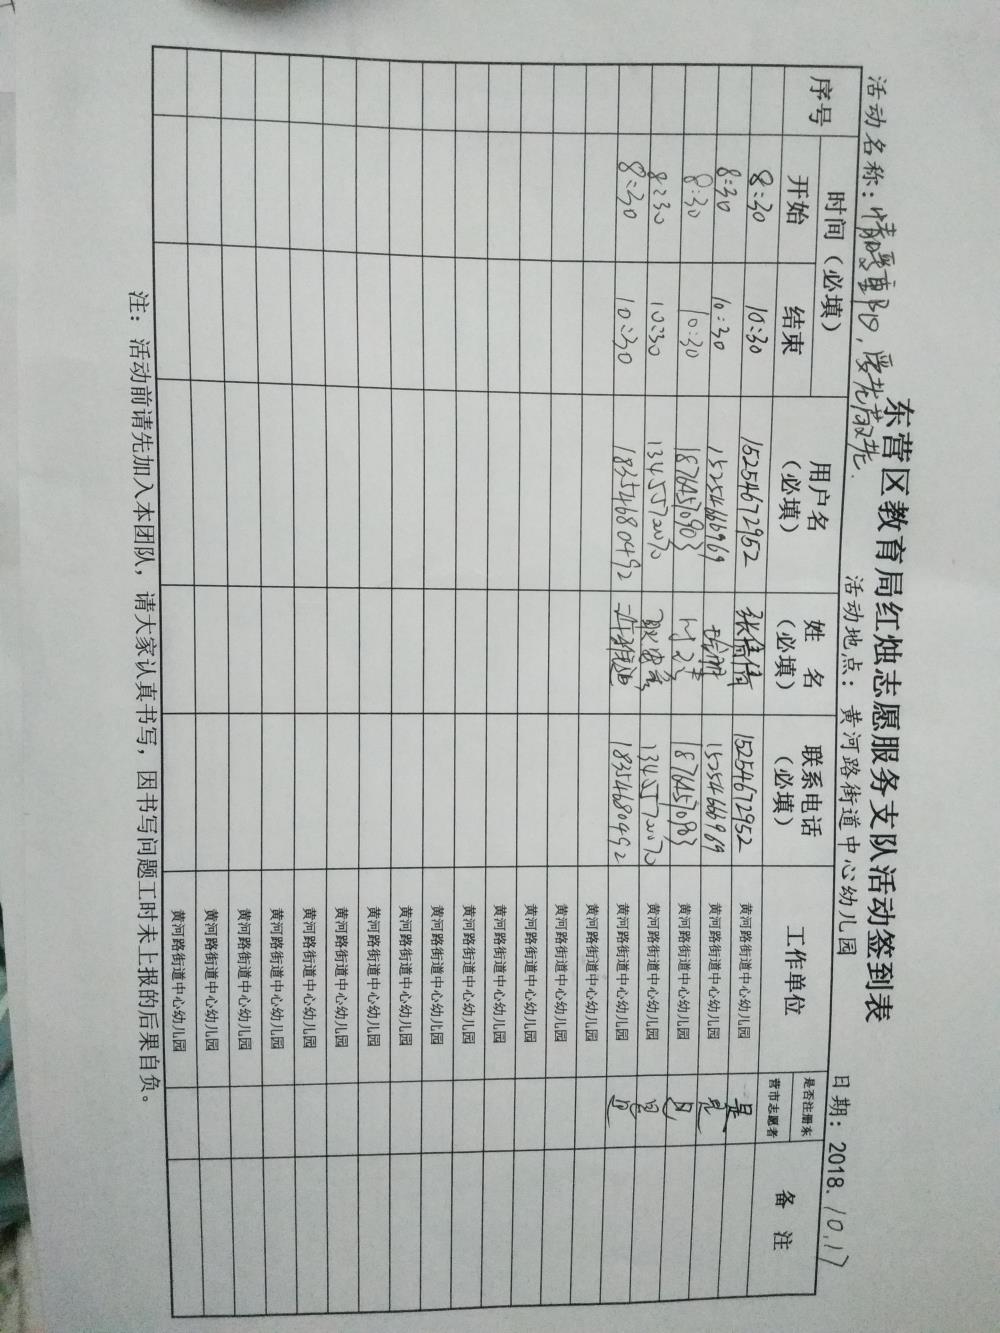 东营区教育局红烛志愿服务支队活动签到表
活动名称：情暖重阳，爱老敬老. 活动地点：黄河路街道中心幼儿园 日期：2018.10.17
序号 时间（必填） 用户名（必填） 姓 名（必填） 联系电话（必填） 工作单位 是否注册东营市志愿者 备 注
开始 结束
8:30 10:30 15254672952 张倩倩 15254672952 黄河路街道中心幼儿园 是
8:30 10:30 15254666969 15254666969 黄河路街道中心幼儿园 是
8:30 10:30 18764570903 18764570903 黄河路街道中心幼儿园 是
8:30 10:30 13455720070 13455720070 黄河路街道中心幼儿园 是
8:30 10:30 18354680492 18354680492 黄河路街道中心幼儿园 是
黄河路街道中心幼儿园
黄河路街道中心幼儿园
黄河路街道中心幼儿园
黄河路街道中心幼儿园
黄河路街道中心幼儿园
黄河路街道中心幼儿园
黄河路街道中心幼儿园
黄河路街道中心幼儿园
黄河路街道中心幼儿园
黄河路街道中心幼儿园
黄河路街道中心幼儿园
黄河路街道中心幼儿园
黄河路街道中心幼儿园
黄河路街道中心幼儿园
注：活动前请先加入本团队，请大家认真书写，因书写问题工时未上报的后果自负。